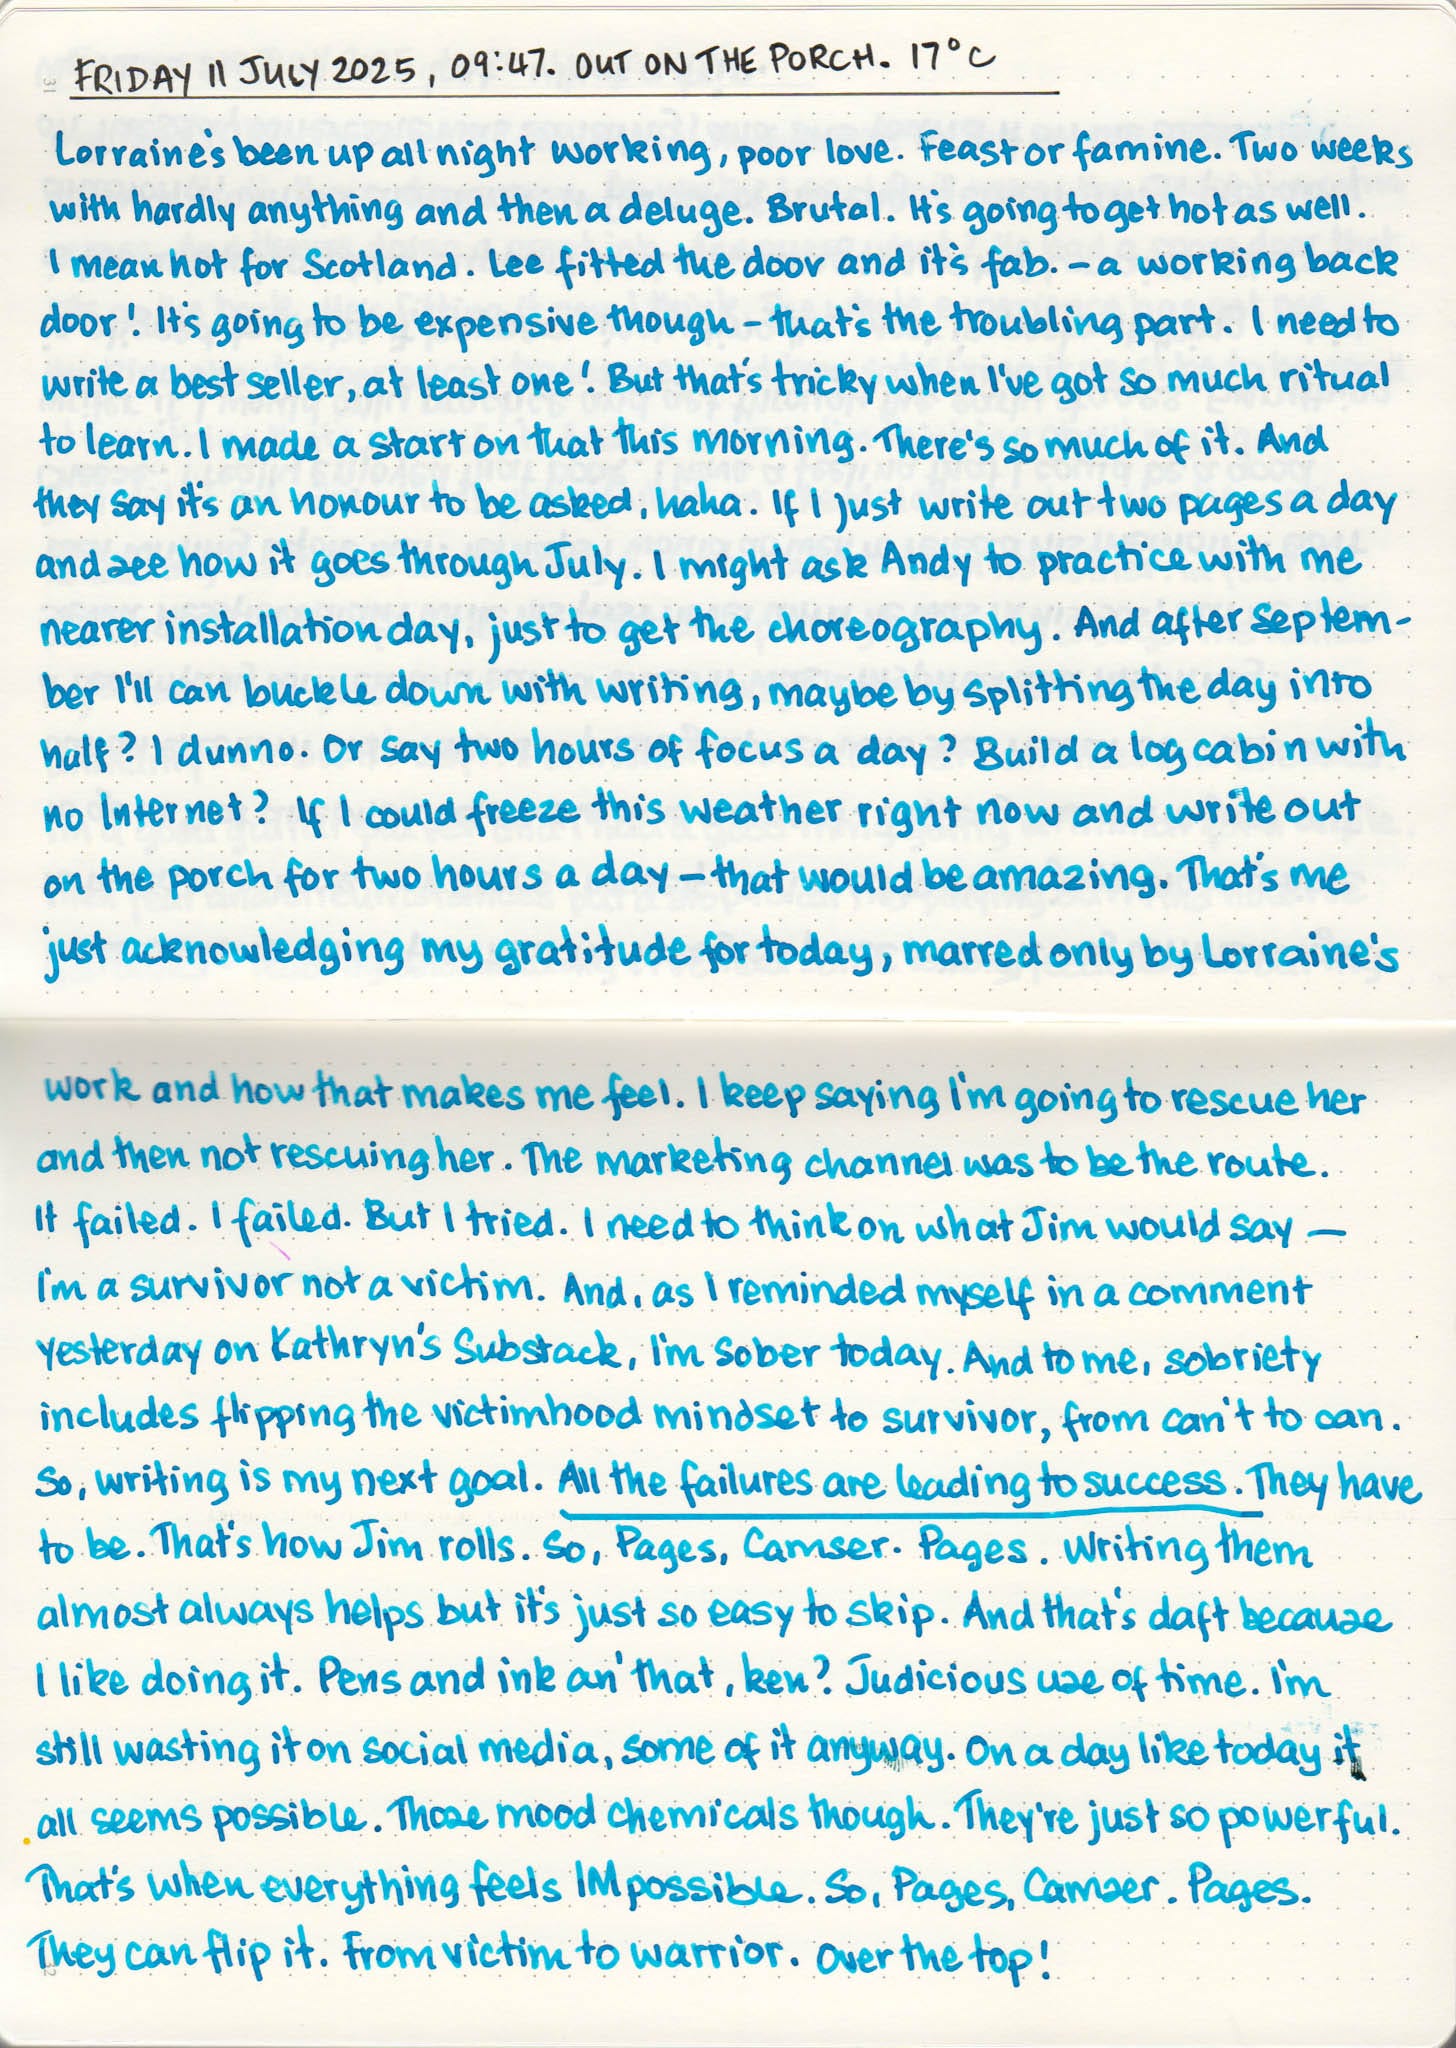 FRIDAY 11 JULY 2025, 09:47. OUT ON THE PORCH. 17°C
Lorraine's been up all night working, poor love. Feast or famine. Two weeks
with hardly anything and then a deluge. Brutal. It's going to get hot as well.
I mean hot for Scotland. Lee fitted the door and it's fab. – a working back
door! It's going to be expensive though – that's the troubling part. I need to
write a best seller, at least one! But that's tricky when I've got so much ritual
to learn. I made a start on that this morning. There's so much of it. And
they say it's an honour to be asked, haha. If I just write out two pages a day
and see how it goes through July. I might ask Andy to practice with me
nearer installation day, just to get the choreography. And after Septem-
ber I'll can buckle down with writing, maybe by splitting the day into
half? I dunno. Or say two hours of focus a day? Build a log cabin with
no Internet? If I could freeze this weather right now and write out
on the porch for two hours a day – that would be amazing. That's me
just acknowledging my gratitude for today, marred only by Lorraine's
work and how that makes me feel. I keep saying I'm going to rescue her
and then not rescuing her. The marketing channel was to be the route.
It failed. I failed. But I tried. I need to think on what Jim would say —
I'm a survivor not a victim. And, as I reminded myself in a comment
yesterday on Kathryn's Substack, I'm sober today. And to me, sobriety
includes flipping the victimhood mindset to survivor, from can't to can.
So, writing is my next goal. All the failures are leading to success. They have
to be. That's how Jim rolls. So, Pages, Camser. Pages. Writing them
almost always helps but it's just so easy to skip. And that's daft because
I like doing it. Pens and ink an' that, ken? Judicious use of time. I'm
still wasting it on social media, some of it anyway. On a day like today it
all seems possible. Those mood chemicals though. They're just so powerful.
That's when everything feels IMpossible. So, Pages, Camser. Pages.
They can flip it. From victim to warrior. Over the top!
31
32